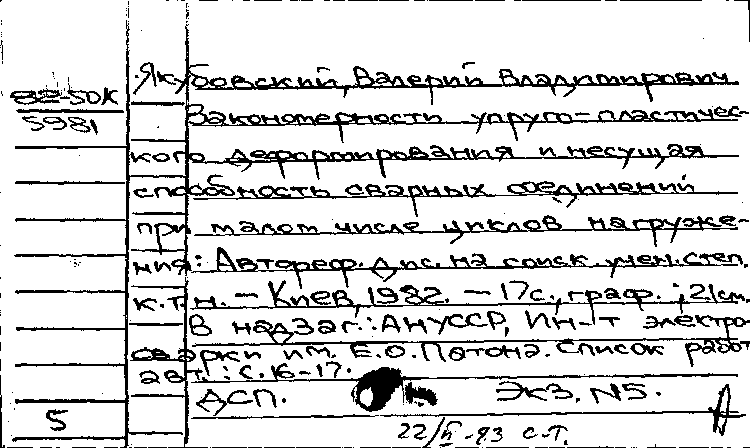 Якубовский, Валерий Владимирович
82-50K
5981
Закономерности упруго-пластичес-
кого деформирования и несущая
способность сварных соединений
при малом числе циклов нагруже-
ния: Автореф. дис. на соиск. учен. степ.
к.т.н. – Киев, 1982. – 17с., граф.; 21см.
В надзаг.: АН УССР, Ин-т электро-
сварки им. Е.О. Патона. Список работ
авт.: с. 16-17.
ДСП. Экз. N5.
5
с-т.